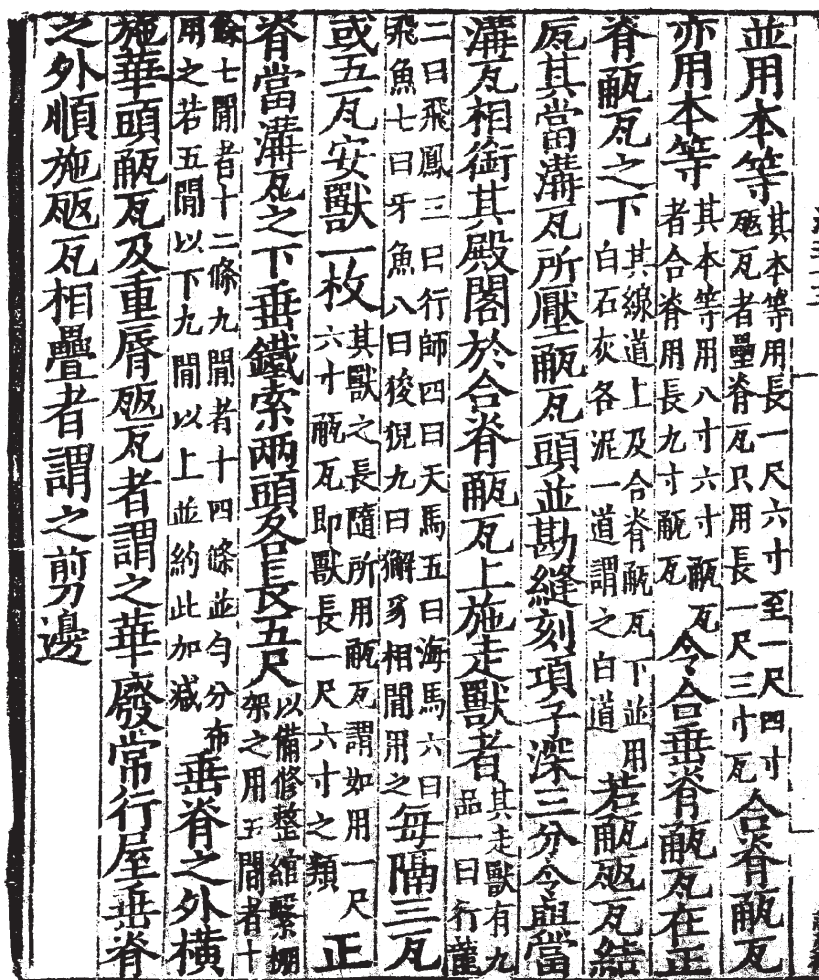 並用本等其本等用長一尺六寸至一尺四寸瓪瓦者壘脊瓦只用長一尺三寸瓦合脊㼧瓦
亦用本等其本等用八寸六寸㼧瓦者合脊用長九寸㼧瓦令合垂脊㼧瓦在正
脊㼧瓦之下其線道上及合脊㼧瓦下並用白石灰各泥一道謂之白道若㼧瓪瓦結
瓦其當溝瓦所壓㼧瓦頭並勘縫刻項子深三分令與當
溝瓦相銜其殿閣於合脊㼧瓦上施走獸者其走獸有九品一曰行龍
二曰飛鳳三曰行師四曰天馬五曰海馬六曰飛魚七曰牙魚八曰狻猊九曰獬豸相間用之每隔三瓦
或五瓦安獸一枚其獸之長隨所用㼧瓦謂如用一尺六寸㼧瓦即獸長一尺六寸之類正
脊當溝瓦之下垂鐵索兩頭各長五尺以備修整綰繫棚架之用五間者十
條七間者十二條九間者十四條並勻分布用之若五間以下九間以上並約此加減垂脊之外橫
施華頭㼧瓦及重脣瓪瓦者謂之華廢常行屋垂脊
之外順施瓪瓦相疊者謂之剪邊